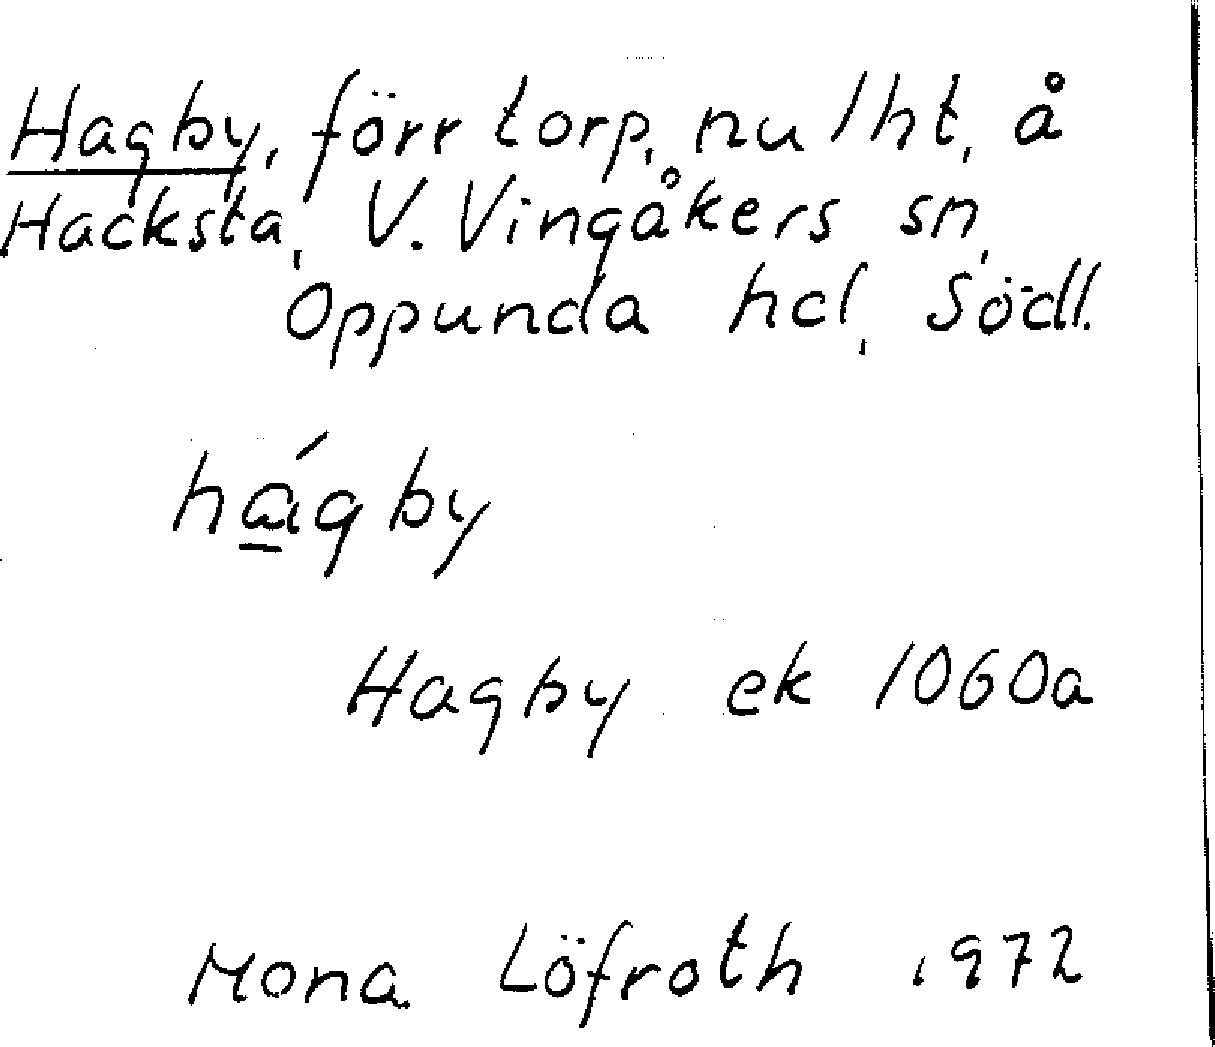 Hagby, förr torp, nu lht, å
Hacksta, V. Vingåkers sn,
Oppunda hd, Södl.
hágby
Hagby ek 1060a
Mona Löfroth 1972